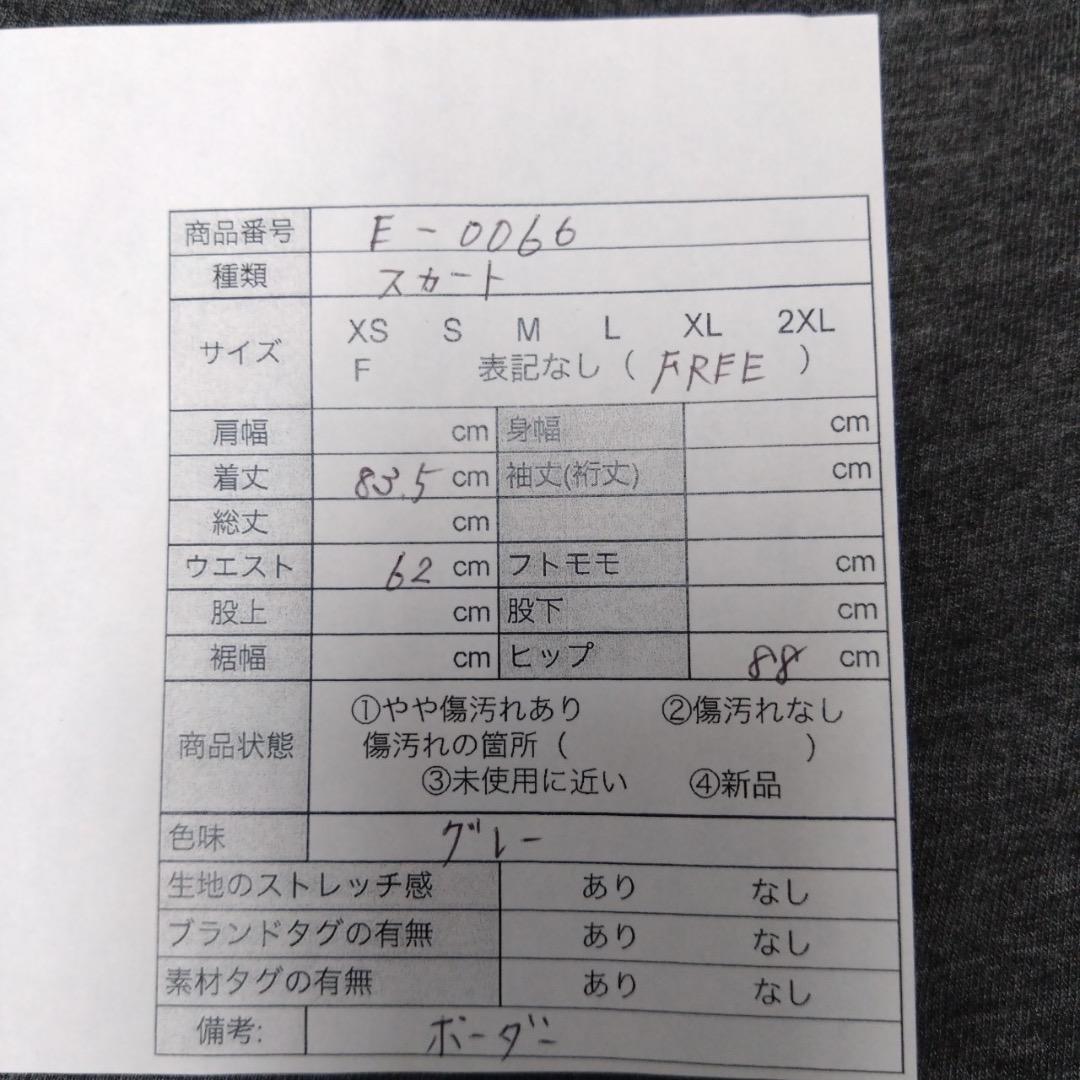 商品番号 E-0066
種類 スカート
サイズ XS S M L XL 2XL
F 表記なし ( FREE )
肩幅 cm 身幅 cm
着丈 83.5 cm 袖丈(裄丈) cm
総丈 cm
ウエスト 62 cm フトモモ cm
股上 cm 股下 cm
裾幅 cm ヒップ 88 cm
商品状態 ①やや傷汚れあり ②傷汚れなし
傷汚れの箇所 ( )
③未使用に近い ④新品
色味 グレー
生地のストレッチ感 あり なし
ブランドタグの有無 あり なし
素材タグの有無 あり なし
備考: ボーダー